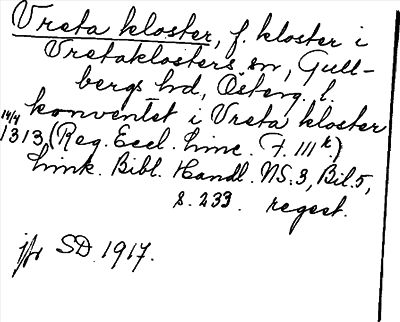 Vreta kloster, f. kloster i
Vretaklosters sn, Gull-
bergs hd, Österg. l.
konventet i Vreta kloster
14/4 1313, (Reg. Eccl. Linc. F. III k.)
Link. Bibl. Handl. NS. 3, Bil. 5,
s. 233. regest.
jfr SD 1917.